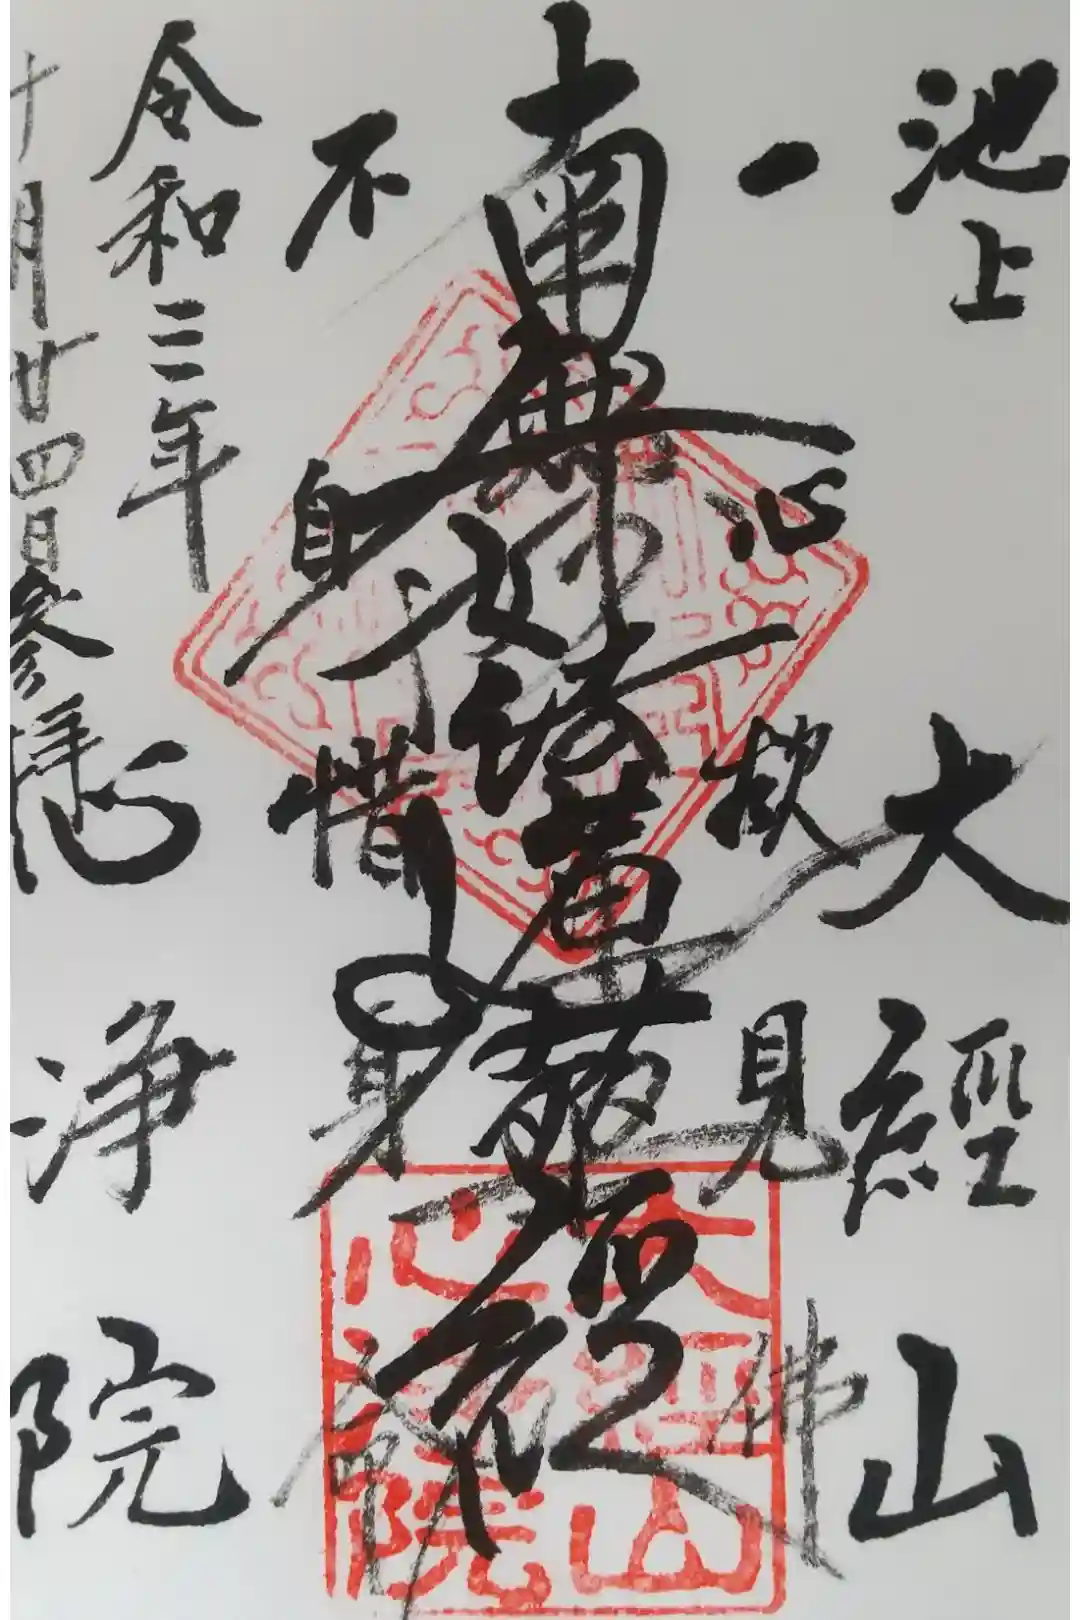 池上
大經山
一心欲見佛
南無妙法蓮華經
不自惜身命
令和三年
十月廿四日参拝
心浄院
大經山心浄院